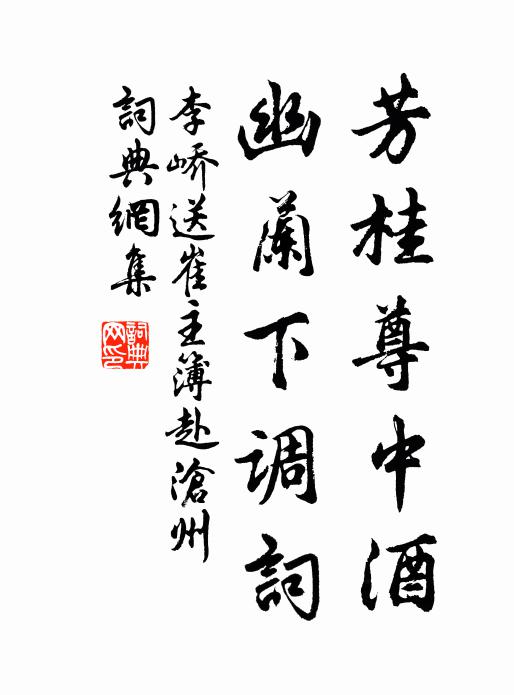 芳桂尊中酒
幽蘭下調詞
李嶠送崔主簿赴滄州
詞典網集
詞典網印